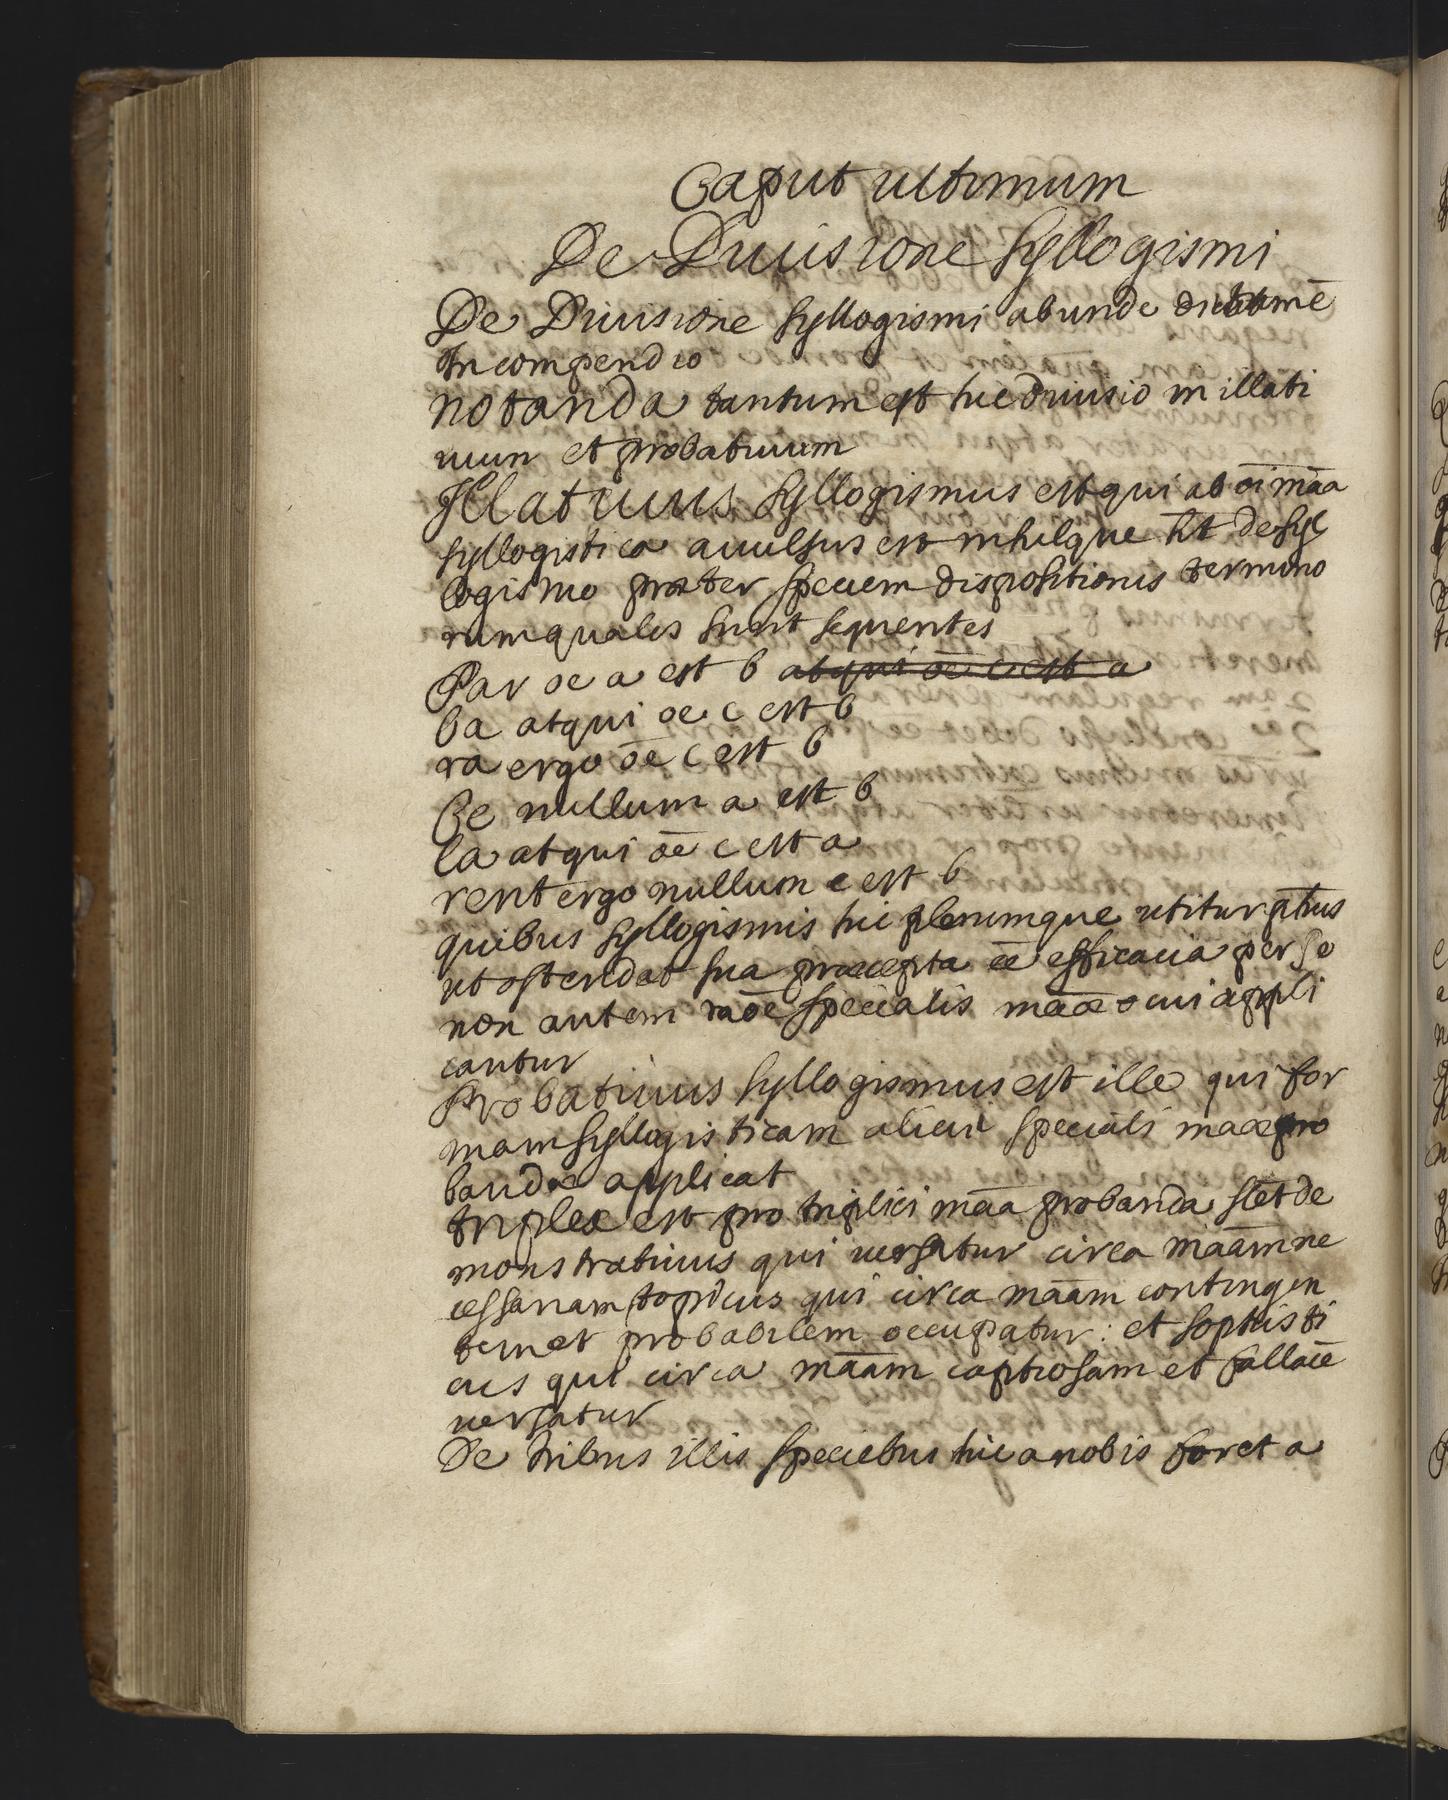 Caput ultimum
De Diuisione syllogismi
De Diuisione syllogismi abunde dictū
In compendio
notanda tantum est hic diuisio in illati
uum et probatiuum
Illatiuus syllogismus est qui ab oī māa
syllogistica auulsus est nihilque ht de syl
logismo præter speciem dispositionis termino
rum quales sunt sequentes
Bar oe a est b atqui oē c est a
ba atqui oe c est b
ra ergo ōe c est b
Ce nullum a est b
la atqui ōe c est a
rent ergo nullum c est b
quibus syllogismis hic plerumque utitur phus
ut ostendat sua præcepta eē efficacia per se
non autem raōe specialis māæ cui appli
cantur
Probatiuus syllogismus est ille qui for
mam syllogisticam alicui speciali maæ pro
bandæ applicat
triplex est pro triplici māa probanda scēt de
monstratiuus qui uersatur circa māam ne
cessariam topicus qui circa māam contingen
tem et probabilem occupatur: et sophisti
cus qui circa māam captiosam et fallacē
uersatur
De tribus illis speciebus hic a nobis foret a